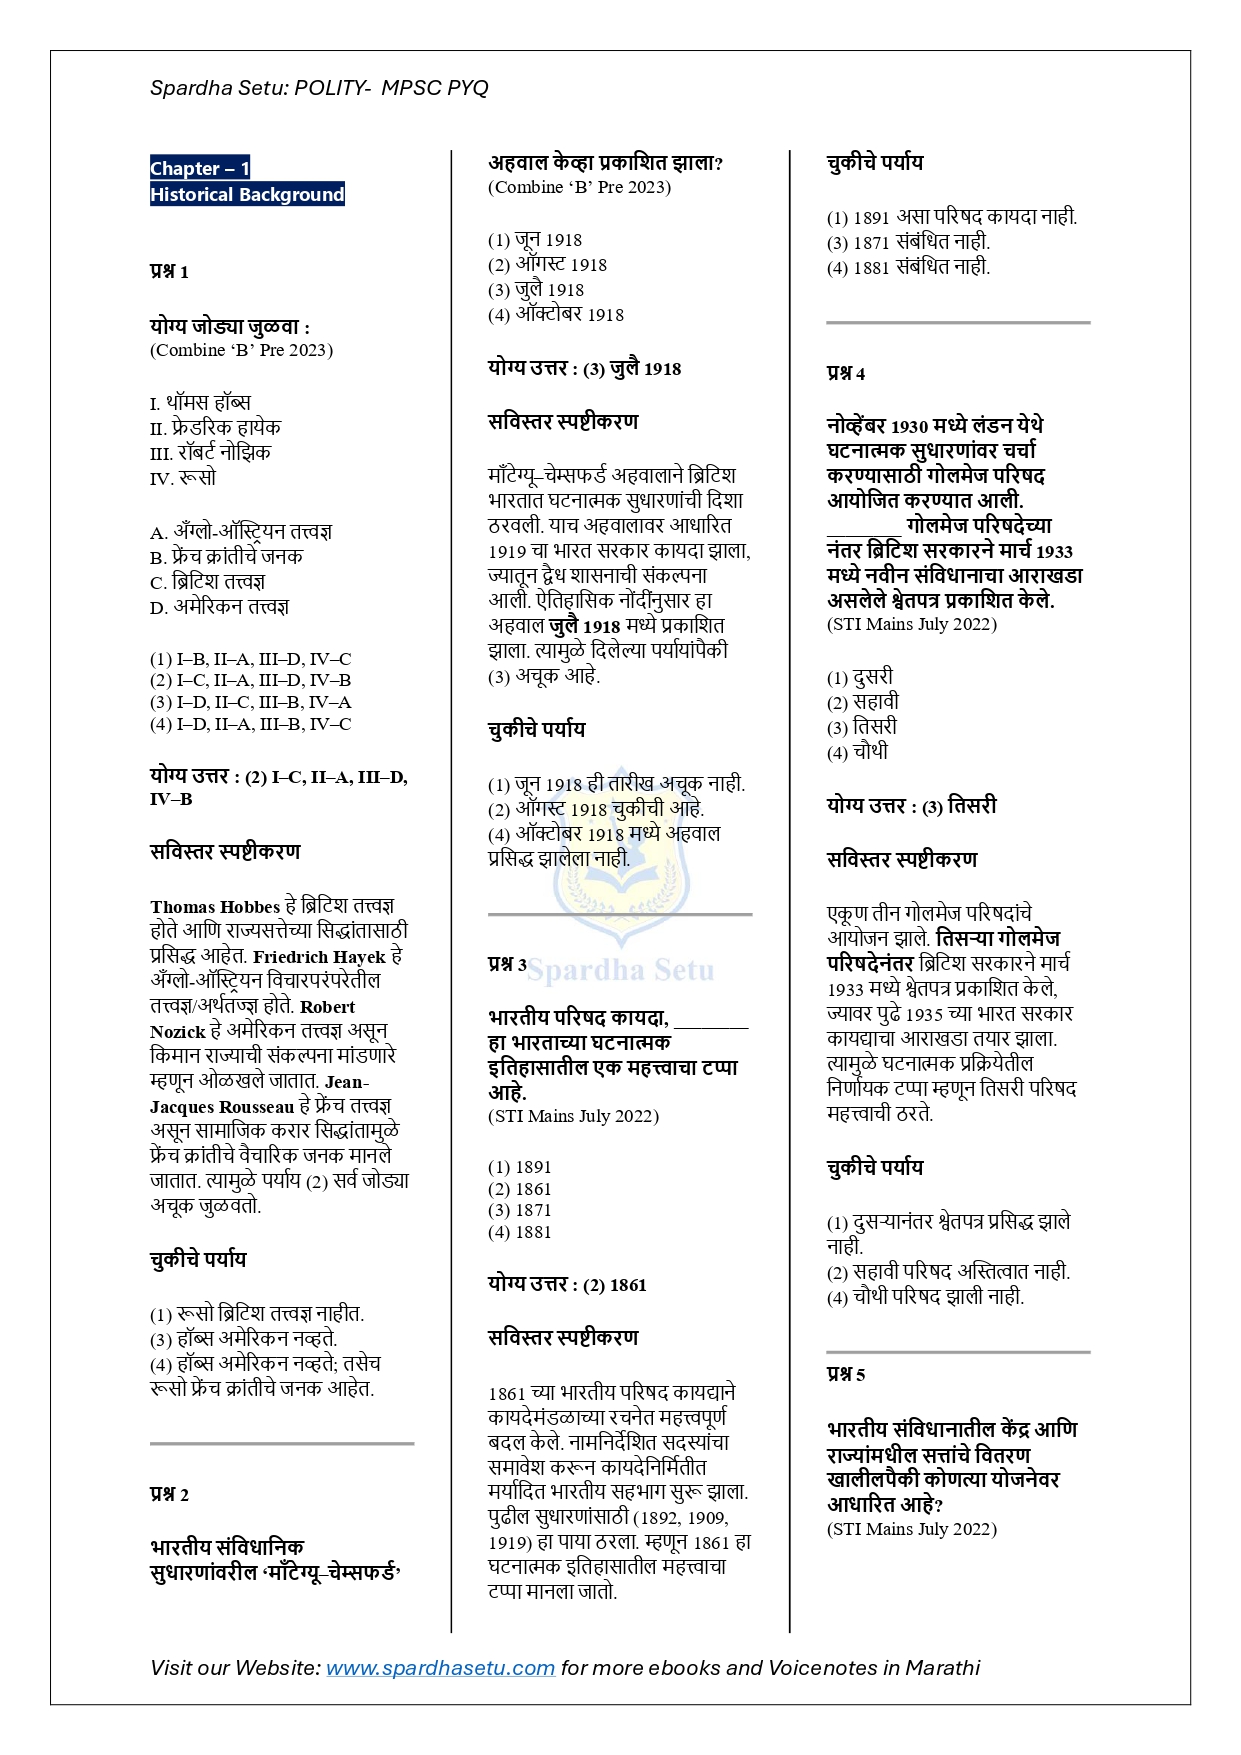 Spardha Setu: POLITY- MPSC PYQ
Chapter – 1
Historical Background
प्रश्न 1
योग्य जोड्या जुळवा :
(Combine ‘B’ Pre 2023)
I. थॉमस हॉब्स
II. फ्रेडरिक हायेक
III. रॉबर्ट नोझिक
IV. रूसो
A. अँग्लो-ऑस्ट्रियन तत्त्वज्ञ
B. फ्रेंच क्रांतीचे जनक
C. ब्रिटिश तत्त्वज्ञ
D. अमेरिकन तत्त्वज्ञ
(1) I–B, II–A, III–D, IV–C
(2) I–C, II–A, III–D, IV–B
(3) I–D, II–C, III–B, IV–A
(4) I–D, II–A, III–B, IV–C
योग्य उत्तर : (2) I–C, II–A, III–D,
IV–B
सविस्तर स्पष्टीकरण
Thomas Hobbes हे ब्रिटिश तत्त्वज्ञ
होते आणि राज्यसत्तेच्या सिद्धांतासाठी
प्रसिद्ध आहेत. Friedrich Hayek हे
अँग्लो-ऑस्ट्रियन विचारपरंपरेतील
तत्त्वज्ञ/अर्थतज्ज्ञ होते. Robert
Nozick हे अमेरिकन तत्त्वज्ञ असून
किमान राज्याची संकल्पना मांडणारे
म्हणून ओळखले जातात. Jean-
Jacques Rousseau हे फ्रेंच तत्त्वज्ञ
असून सामाजिक करार सिद्धांतामुळे
फ्रेंच क्रांतीचे वैचारिक जनक मानले
जातात. त्यामुळे पर्याय (2) सर्व जोड्या
अचूक जुळवतो.
चुकीचे पर्याय
(1) रूसो ब्रिटिश तत्त्वज्ञ नाहीत.
(3) हॉब्स अमेरिकन नव्हते.
(4) हॉब्स अमेरिकन नव्हते; तसेच
रूसो फ्रेंच क्रांतीचे जनक आहेत.
प्रश्न 2
भारतीय संविधानिक
सुधारणांवरील ‘माँटेग्यू–चेम्सफर्ड’
अहवाल केव्हा प्रकाशित झाला?
(Combine ‘B’ Pre 2023)
(1) जून 1918
(2) ऑगस्ट 1918
(3) जुलै 1918
(4) ऑक्टोबर 1918
योग्य उत्तर : (3) जुलै 1918
सविस्तर स्पष्टीकरण
माँटेग्यू–चेम्सफर्ड अहवालाने ब्रिटिश
भारतात घटनात्मक सुधारणांची दिशा
ठरवली. याच अहवालावर आधारित
1919 चा भारत सरकार कायदा झाला,
ज्यातून द्वैध शासनाची संकल्पना
आली. ऐतिहासिक नोंदींनुसार हा
अहवाल जुलै 1918 मध्ये प्रकाशित
झाला. त्यामुळे दिलेल्या पर्यायांपैकी
(3) अचूक आहे.
चुकीचे पर्याय
(1) जून 1918 ही तारीख अचूक नाही.
(2) ऑगस्ट 1918 चुकीची आहे.
(4) ऑक्टोबर 1918 मध्ये अहवाल
प्रसिद्ध झालेला नाही.
Spardha Setu
प्रश्न 3
भारतीय परिषद कायदा, ________
हा भारताच्या घटनात्मक
इतिहासातील एक महत्त्वाचा टप्पा
आहे.
(STI Mains July 2022)
(1) 1891
(2) 1861
(3) 1871
(4) 1881
योग्य उत्तर : (2) 1861
सविस्तर स्पष्टीकरण
1861 च्या भारतीय परिषद कायद्याने
कायदेमंडळाच्या रचनेत महत्त्वपूर्ण
बदल केले. नामनिर्देशित सदस्यांचा
समावेश करून कायदेनिर्मितीत
मर्यादित भारतीय सहभाग सुरू झाला.
पुढील सुधारणांसाठी (1892, 1909,
1919) हा पाया ठरला. म्हणून 1861 हा
घटनात्मक इतिहासातील महत्त्वाचा
टप्पा मानला जातो.
चुकीचे पर्याय
(1) 1891 असा परिषद कायदा नाही.
(3) 1871 संबंधित नाही.
(4) 1881 संबंधित नाही.
प्रश्न 4
नोव्हेंबर 1930 मध्ये लंडन येथे
घटनात्मक सुधारणांवर चर्चा
करण्यासाठी गोलमेज परिषद
आयोजित करण्यात आली.
________ गोलमेज परिषदेच्या
नंतर ब्रिटिश सरकारने मार्च 1933
मध्ये नवीन संविधानाचा आराखडा
असलेले श्वेतपत्र प्रकाशित केले.
(STI Mains July 2022)
(1) दुसरी
(2) सहावी
(3) तिसरी
(4) चौथी
योग्य उत्तर : (3) तिसरी
सविस्तर स्पष्टीकरण
एकूण तीन गोलमेज परिषदांचे
आयोजन झाले. तिसऱ्या गोलमेज
परिषदेनंतर ब्रिटिश सरकारने मार्च
1933 मध्ये श्वेतपत्र प्रकाशित केले,
ज्यावर पुढे 1935 च्या भारत सरकार
कायद्याचा आराखडा तयार झाला.
त्यामुळे घटनात्मक प्रक्रियेतील
निर्णायक टप्पा म्हणून तिसरी परिषद
महत्त्वाची ठरते.
चुकीचे पर्याय
(1) दुसऱ्यानंतर श्वेतपत्र प्रसिद्ध झाले
नाही.
(2) सहावी परिषद अस्तित्वात नाही.
(4) चौथी परिषद झाली नाही.
प्रश्न 5
भारतीय संविधानातील केंद्र आणि
राज्यांमधील सत्तांचे वितरण
खालीलपैकी कोणत्या योजनेवर
आधारित आहे?
(STI Mains July 2022)
Visit our Website: www.spardhasetu.com for more ebooks and Voicenotes in Marathi